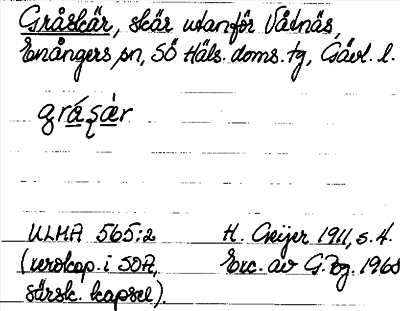 Gråskär, skär utanför Våtnäs,
Enångers sn, SÖ Häls. doms. tg, Gävl. l.
ULMA 565:2 H. Geijer 1911, s. 4.
(verokop. i SOA, Exc. av G. Bg. 1968
särsk. kapsel).